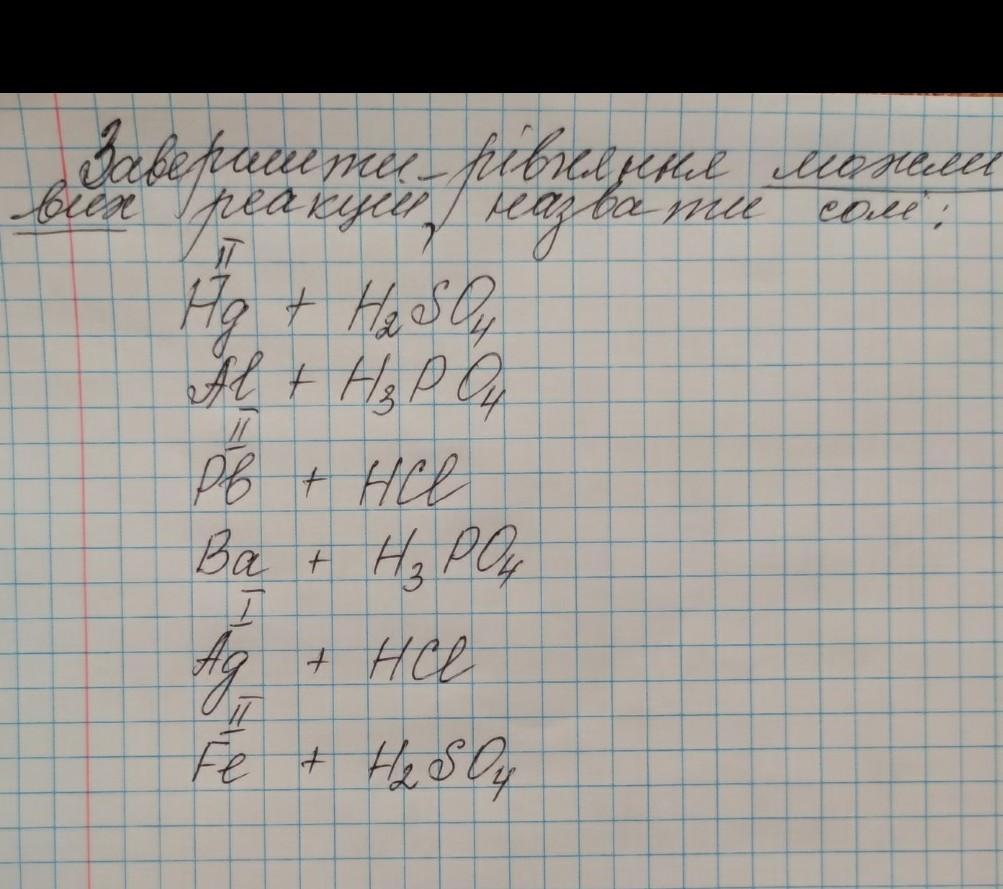 Завершити рівняння можли
вих реакцій, назвати солі:
II
Hg + H₂SO₄
Al + H₃PO₄
II
Pb + HCl
Ba + H₃PO₄
I
Ag + HCl
II
Fe + H₂SO₄